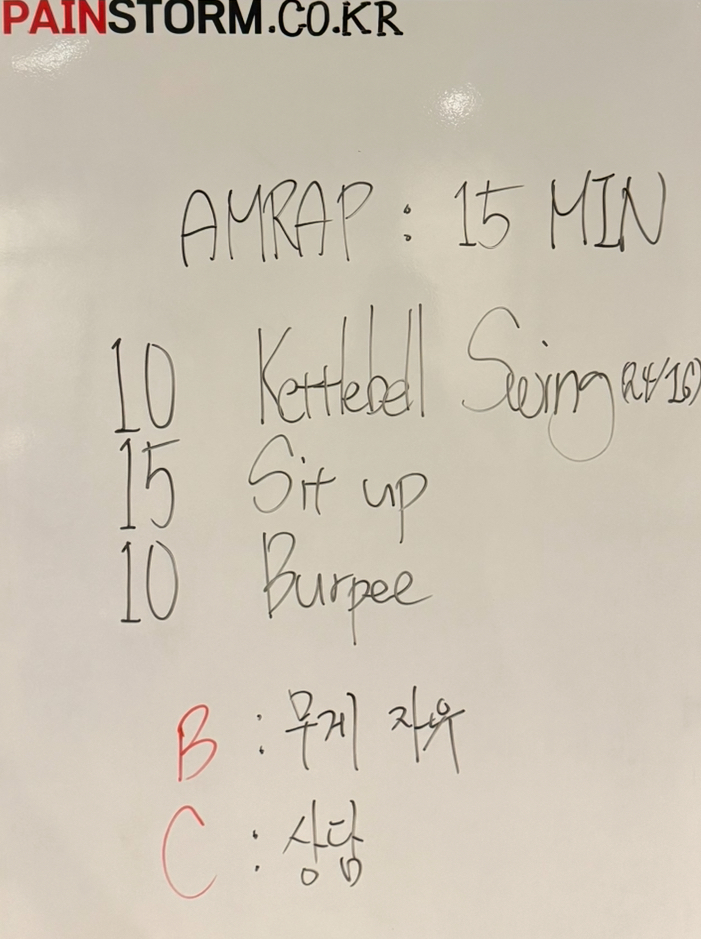 PAINSTORM.CO.KR
AMRAP : 15 MIN
10 Kettlebell Swing (24/16)
15 Sit up
10 Burpee
B : 무게 자유
C : 상담